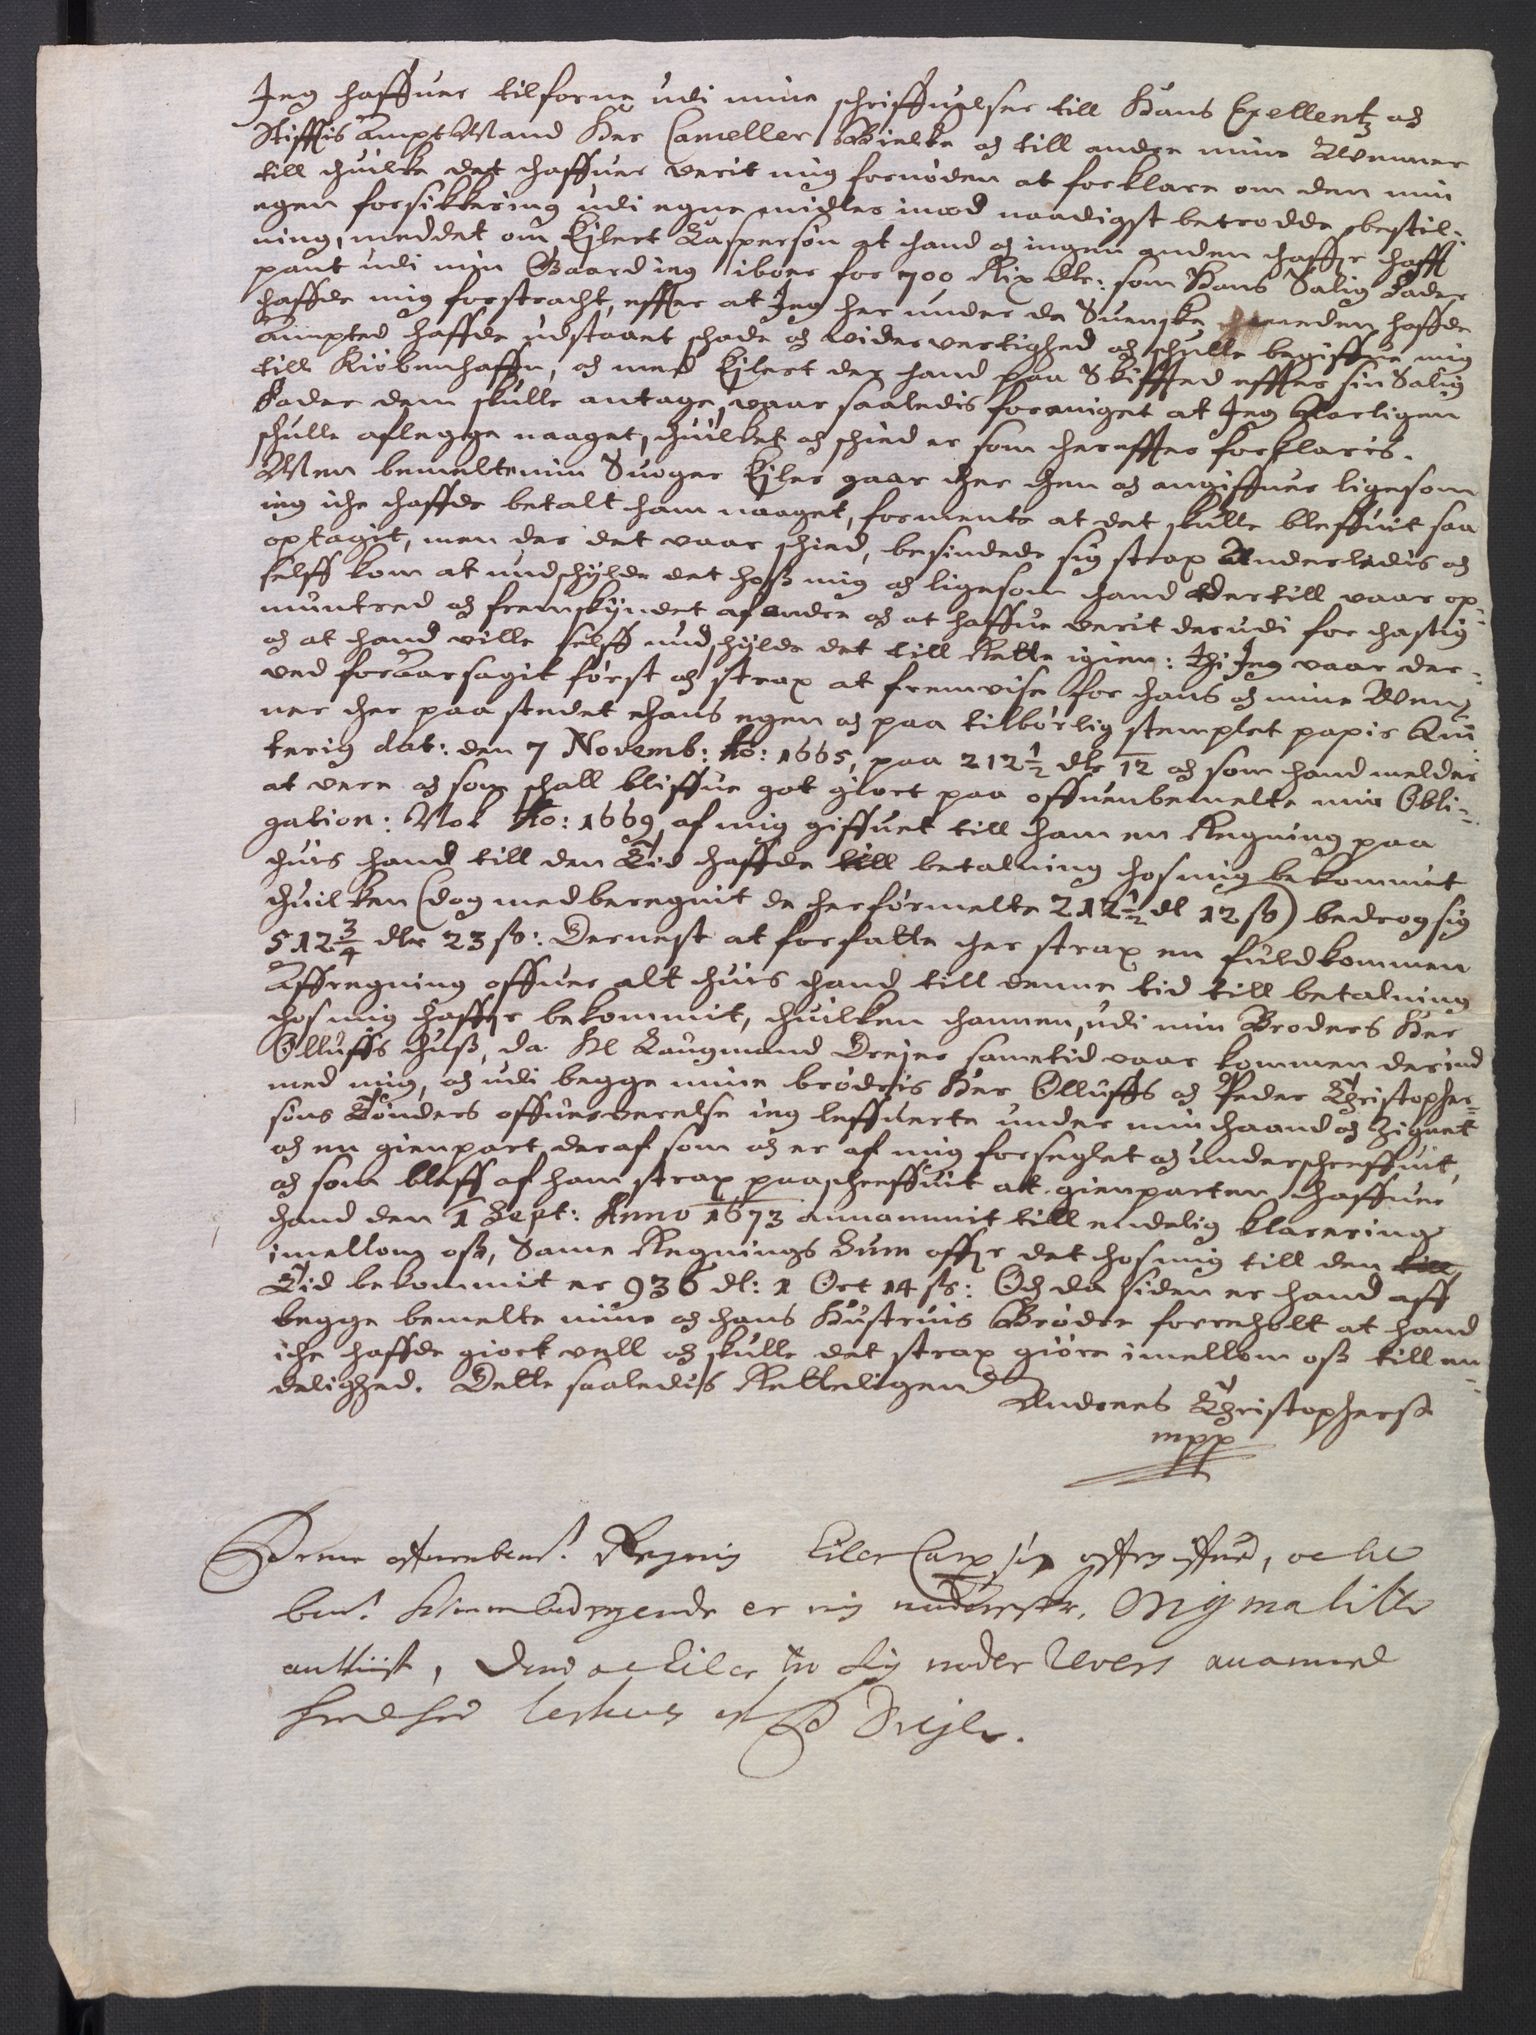 Jeg haffuer tilforne udi mine schriffuelser till Hans Exellentz og
Stiftis AmptMand Her Cameller Bielke og till andre mine Wenner
till huilke det haffuer verit mig fornøden at forklare om den min
egen forsikkering udi egne midler imod naadigst betrodde bestil:
ning, med det om Eilert Kaspersøn at hand og ingen anden haffer hafft
pant udi min Gaard ieg iboer for 700 Rix dlr: som Hans Salig Fader
haffde mig forstracht, effter at Jeg her under de Suenske haffde
Ampted haffde udstaaet schade og Widervertighed og schulle begiffue mig
till Kiøbenhaffn, og med Eilert der hand paa Skiffted effter sin Salig
Fader dem skulle antage, vaar saaledis foreniget at Jeg Aarligen
schulle aflegge naaget, huilket og schied er som hereffter forklaris.
Men bemelte min Suoger Eiler gaar her hen og angiffuer ligesom
ieg iche haffde betalt ham naaget, formente at det skulle bleffuit saa
optagit, men der det vaar schied, besindede sig strax Anderledis og
selff kom at undschylde det hoß mig og ligesom hand dertill vaar op:
muntred og fremskyndet af andre og at haffue verit derudi for hastig
og at hand ville selff undschylde det till Rette igien: Thi Jeg vaar der:
ved foraarsagit først og strax at fremvise for hans og mine Wen:
ner her paa stedet hans egen og paa tilbørlig stemplet papir Qui
tering dat: den 7 Novemb: Ao: 1665, paa 212½ dlr 12 og som hand melder
at vere og som schall bliffue got giort paa offuenbemelte min Obli:
gation: Nok Ao: 1669 af mig giffuet till ham en Regning paa
huis hand till den Tid haffde till betalning hos mig bekommit
huilken (dog med beregnit de herformelte 212½ dl 12 ß) bedrog sig
512¾ dlr 23 ß: Dernest at forfatte her strax en fuldkommen
Affregning offuer alt huis hand till denne tid till betalning
hos mig haffer bekommit, huilken hannem, udi min Broders Her
Olluffs huß, da Hl Laugmand Dreier sametid vaar kommen derind
med mig, og udi begge mine brødris Her Olluffs og Peder Christopher=
søns Tønders offuerverelse ieg leffuerte under min haand og Zignet
og en gienpart deraf som og er af mig forseglet og underschreffuit,
og som bleff af ham strax paaschreffuit at gienparten haffuer
hand den 1 Sept: Anno 1673 annammit till endelig klarering
imellom oß, Same Regnings Sum offer det hos mig till den till
Tid bekommit er 936 dl: 1 Ort 14 ß: Og da siden er hand aff
begge bemelte mine og hans Hustruis Brødre foreholt at hand
iche haffde giort vell og skulle det strax giøre imellom oß till en
delighed. Dette saaledis Retteligen
Andrees Christophersø
mpp
Denne offuenbem: Regnig Eiler Casp søn, och
bem: er mig Originalit
Eiler